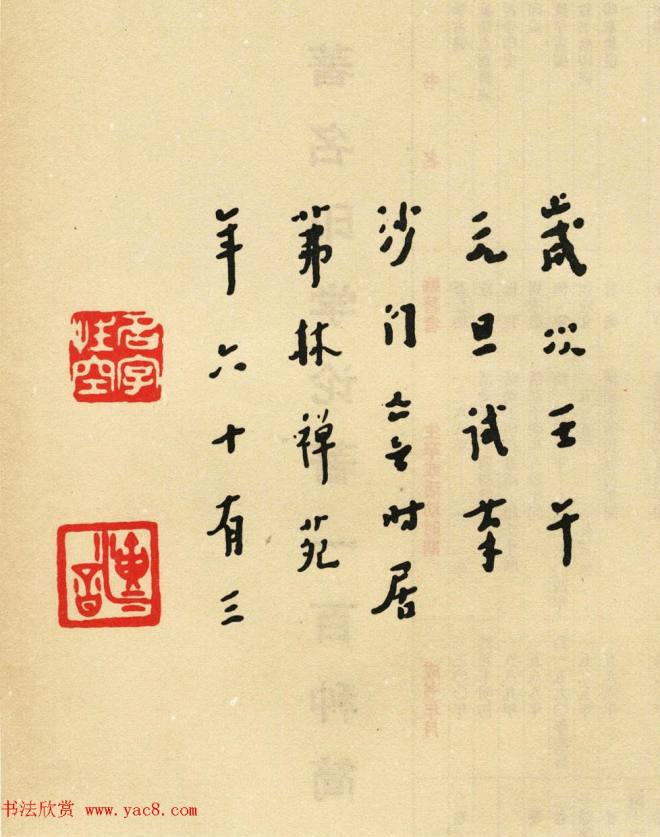 歲次壬午
元旦試筆
沙门亡言时居
茀林禅苑
年六十有三
名字性空
演音
书法欣赏 www.yac8.com